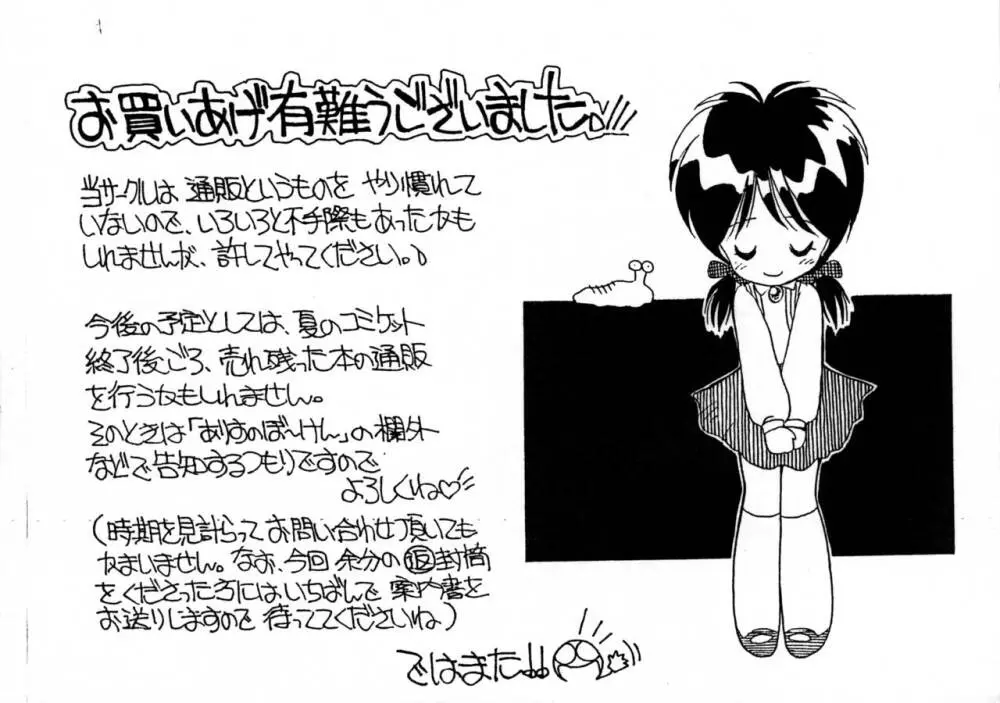 お買いあげ有難うございました。
当サークルは通販というものを やり慣れて
いないので、いろいろと不手際もあったかも
しれませんが、許してやってください。
今後の予定としては、夏のコミケット
終了後ごろ、売れ残った本の通販
を行うかもしれません。
そのときは「ありすのぼーけん」の欄外
などで告知するつもりですので
よろしくね♡
(時期を見計らってお問い合わせ頂いても
かまいません。なお、今回 余分の返封筒
をくださった方にはいちばんで 案内書を
お送りしますので 待っててくださいね)
ではまた!!